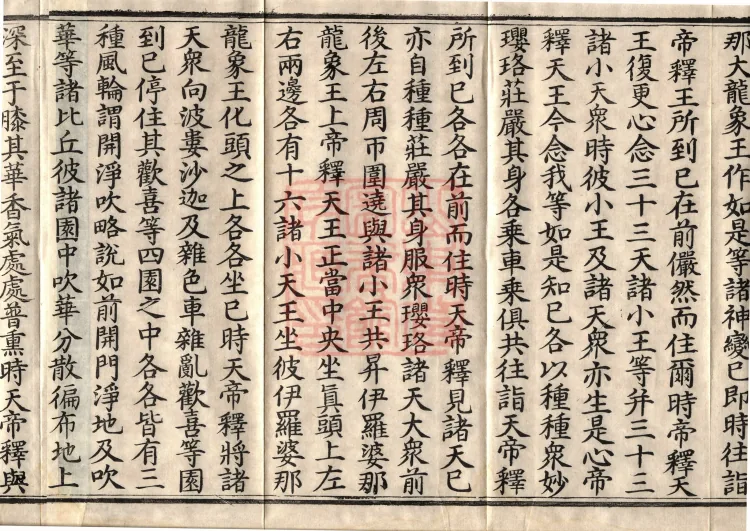 那大龍象王作如是等諸神變已即時往詣
帝釋王所到已在前儼然而住爾時帝釋天
王復更心念三十三天諸小王等幷三十三
諸小天衆時彼小王及諸天衆亦生是心帝
釋天王今念我等如是知已各以種種衆妙
瓔珞莊嚴其身各乘車乘俱共往詣天帝釋
所到已各各在前而住時天帝釋見諸天已
亦自種種莊嚴其身服衆瓔珞諸天大衆前
後左右周帀圍遶與諸小王共昇伊羅婆那
龍象王上帝釋天王正當中央坐眞頭上左
右兩邊各有十六諸小天王坐彼伊羅婆那
龍象王化頭之上各各坐已時天帝釋將諸
天衆向波婁沙迦及雜色車雜亂歡喜等園
到已停住其歡喜等四園之中各各皆有三
種風輪謂開淨吹略說如前開門淨地及吹
華等諸比丘彼諸園中吹華分散徧布地上
深至于膝其華香氣處處普熏時天帝釋與